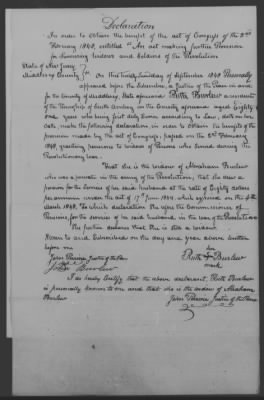 Declaration
In order to obtain the benefit of the act of Congress of the 2nd
February 1848, entitled "An act making further Provision
for surviving widows and soldiers of the Revolution
State of New Jersey
Middlesex County } ss. On this twenty day of September 1848 Personally
appeared before the Subscriber, a Justice of the Peace in and
for the County of Middlesex State aforesaid Ruth Burlew a resident
of the Township of South Amboy in the County aforesaid aged Eighty
one years who being first duly sworn according to Law, doth on her
oath make the following declaration, in order to obtain the benefit of the
provision made by the act of Congress, passed on the 2nd February
1848, granting pensions to widows of Persons who served during the
Revolutionary War.
That she is the widow of Abraham Burlew
who was a private in the army of the Revolution, that she drew a
pension for the service of her said husband at the rate of Eighty dollars
per annum under the act of 17th June 1844 which expired on the 4th
March 1848. To which declaration she refers the Commissioner of
Pensions, for the service of her said husband in the war of the Revolution
She further declares that she is still a widow.
Sworn to and Subscribed on the day and year above written
before me
her
Justice of the Peace Ruth X Burlew
Burlew mark
I do hereby Certify that the above declarant, Ruth Burlew
is personally known to me and that she is the widow of Abraham
Burlew
Justice of the Peace